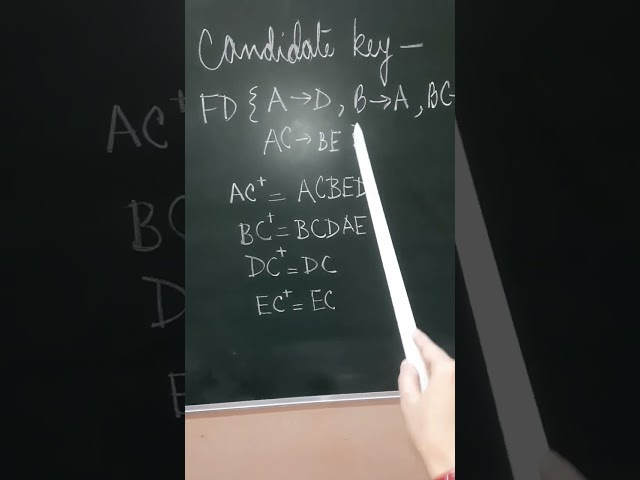 Candidate key —
FD { A→D, B→A, BC-
AC → BE }
AC⁺ = ACBED
BC⁺ = BCDAE
DC⁺ = DC
EC⁺ = EC